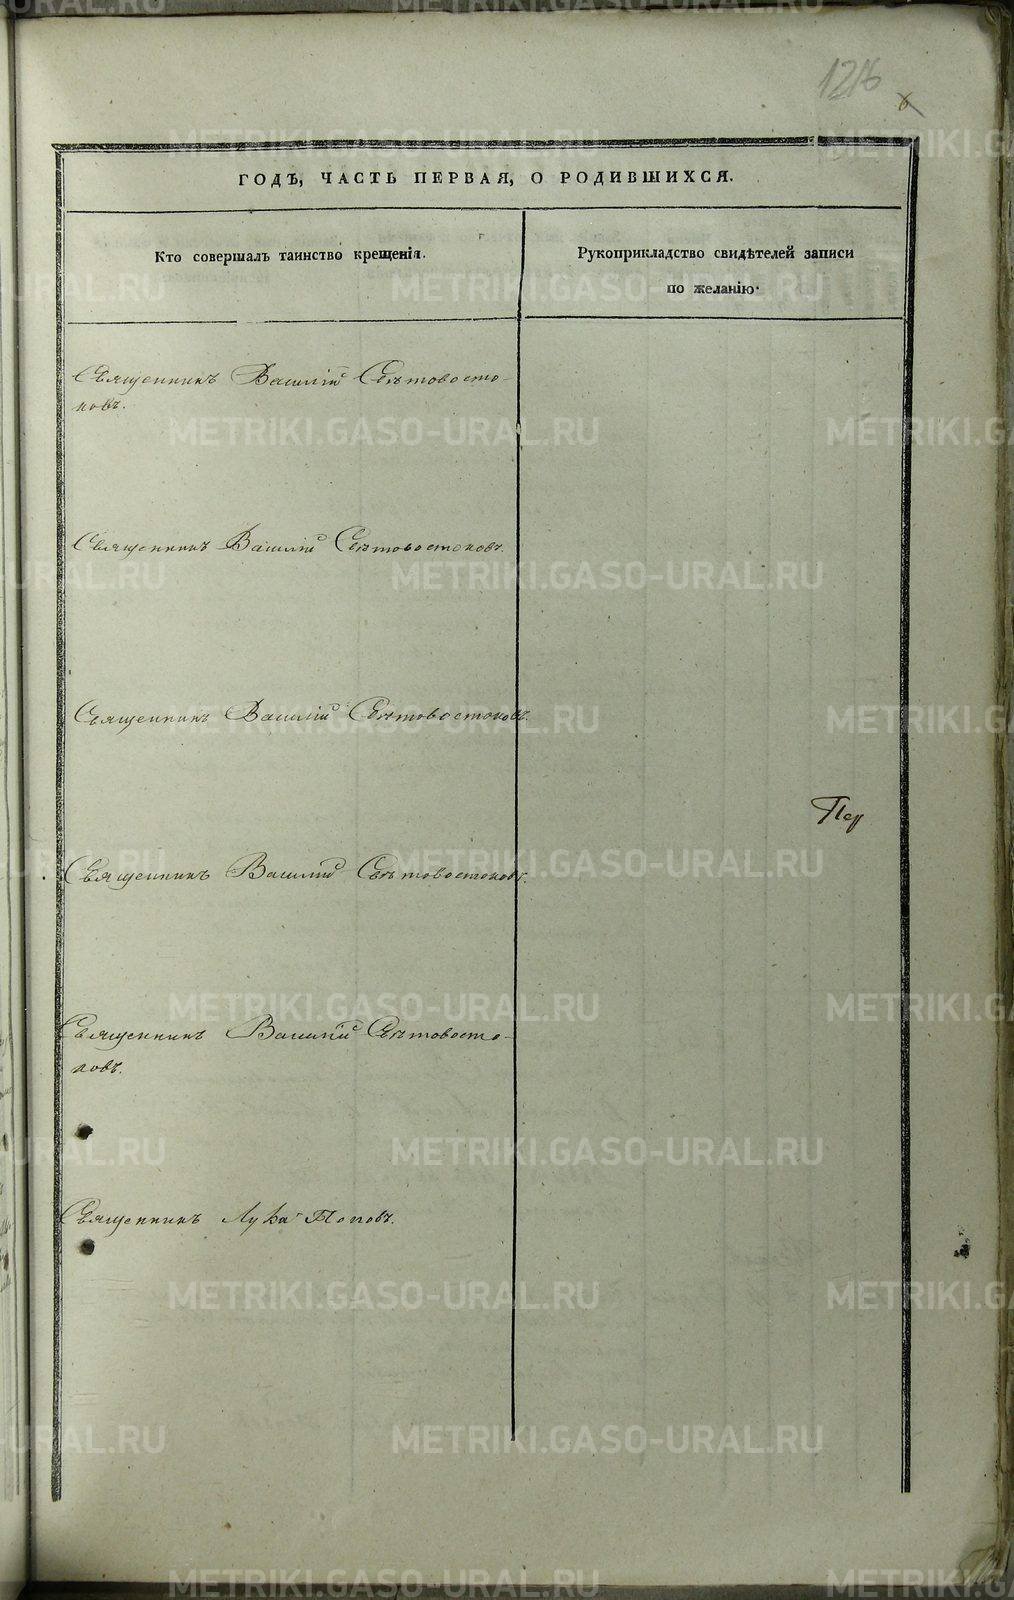 1216
6
ГОДЪ, ЧАСТЬ ПЕРВАЯ, О РОДИВШИХСЯ.
Кто совершалъ таинство крещенія.
Рукоприкладство свидѣтелей записи
по желанію.
Священникъ Василій Свѣтовосто-
ковъ.
Священникъ Василій Свѣтовостоковъ.
Священникъ Василій Свѣтовостоковъ.
Пер
Священникъ Василій Свѣтовостоковъ.
Священникъ Василій Свѣтовосто-
ковъ.
Священникъ Лука Поповъ.
METRIKI.GASO-URAL.RU